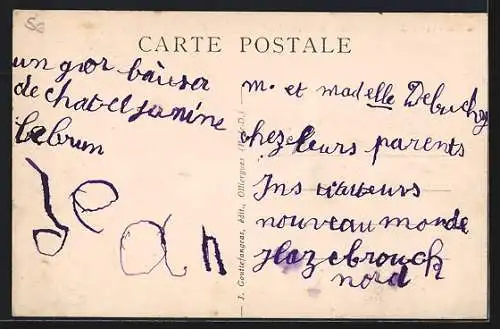 50
CARTE POSTALE
un gror baiser
de chat et janine
Lebrun
Jean
J. Gouttefangeas, édit., Olliergues (P.-de-D.)
M. et madelle Debuchy
chez leurs parents
Ins tituteurs
nouveau monde
Hazebrouck
nord